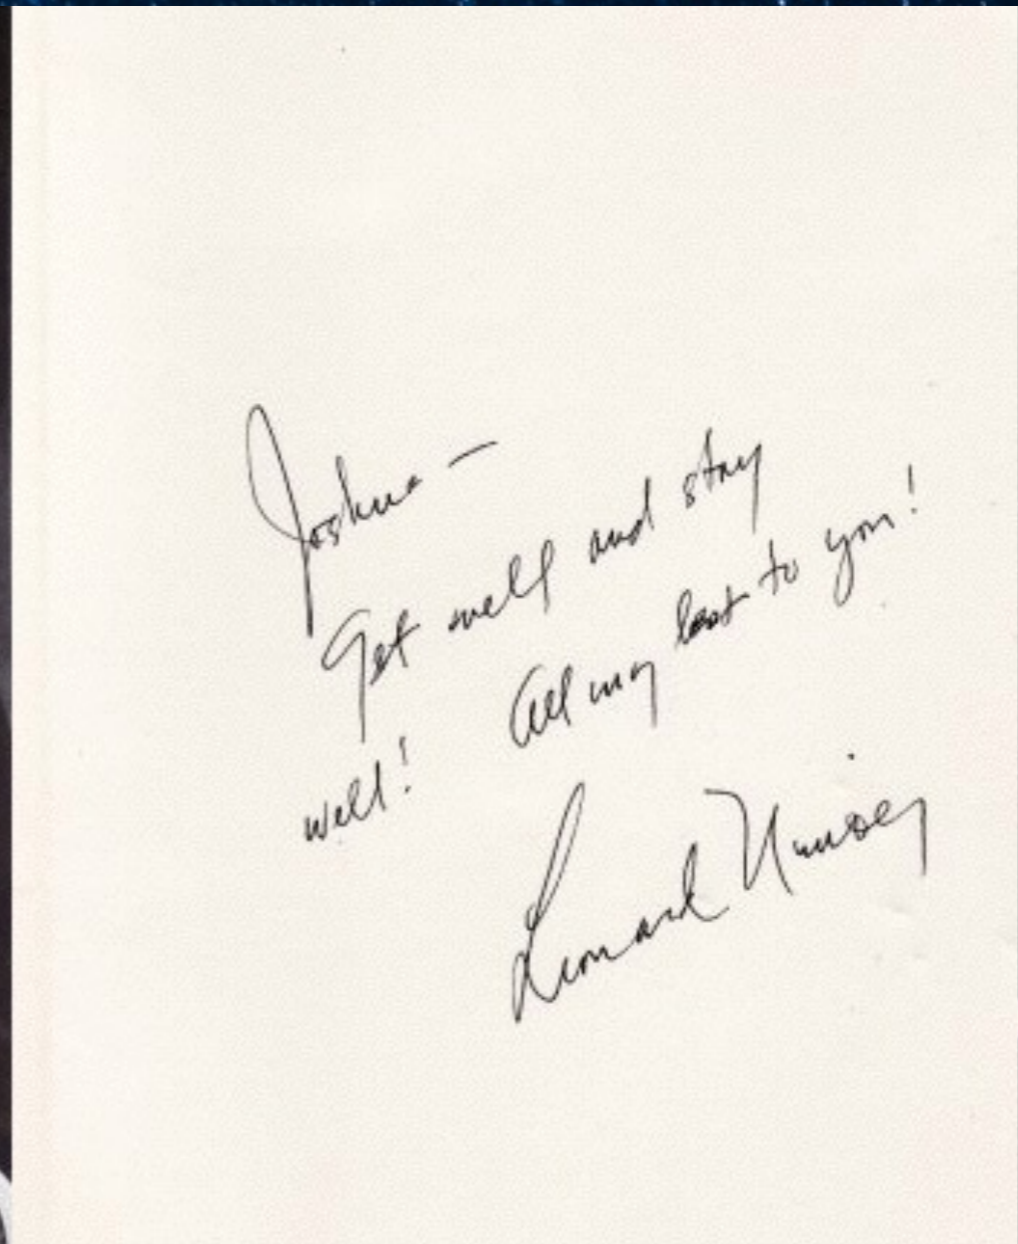 Joshua —
Get well and stay
well! All my best to you!
Leonard Nimoy